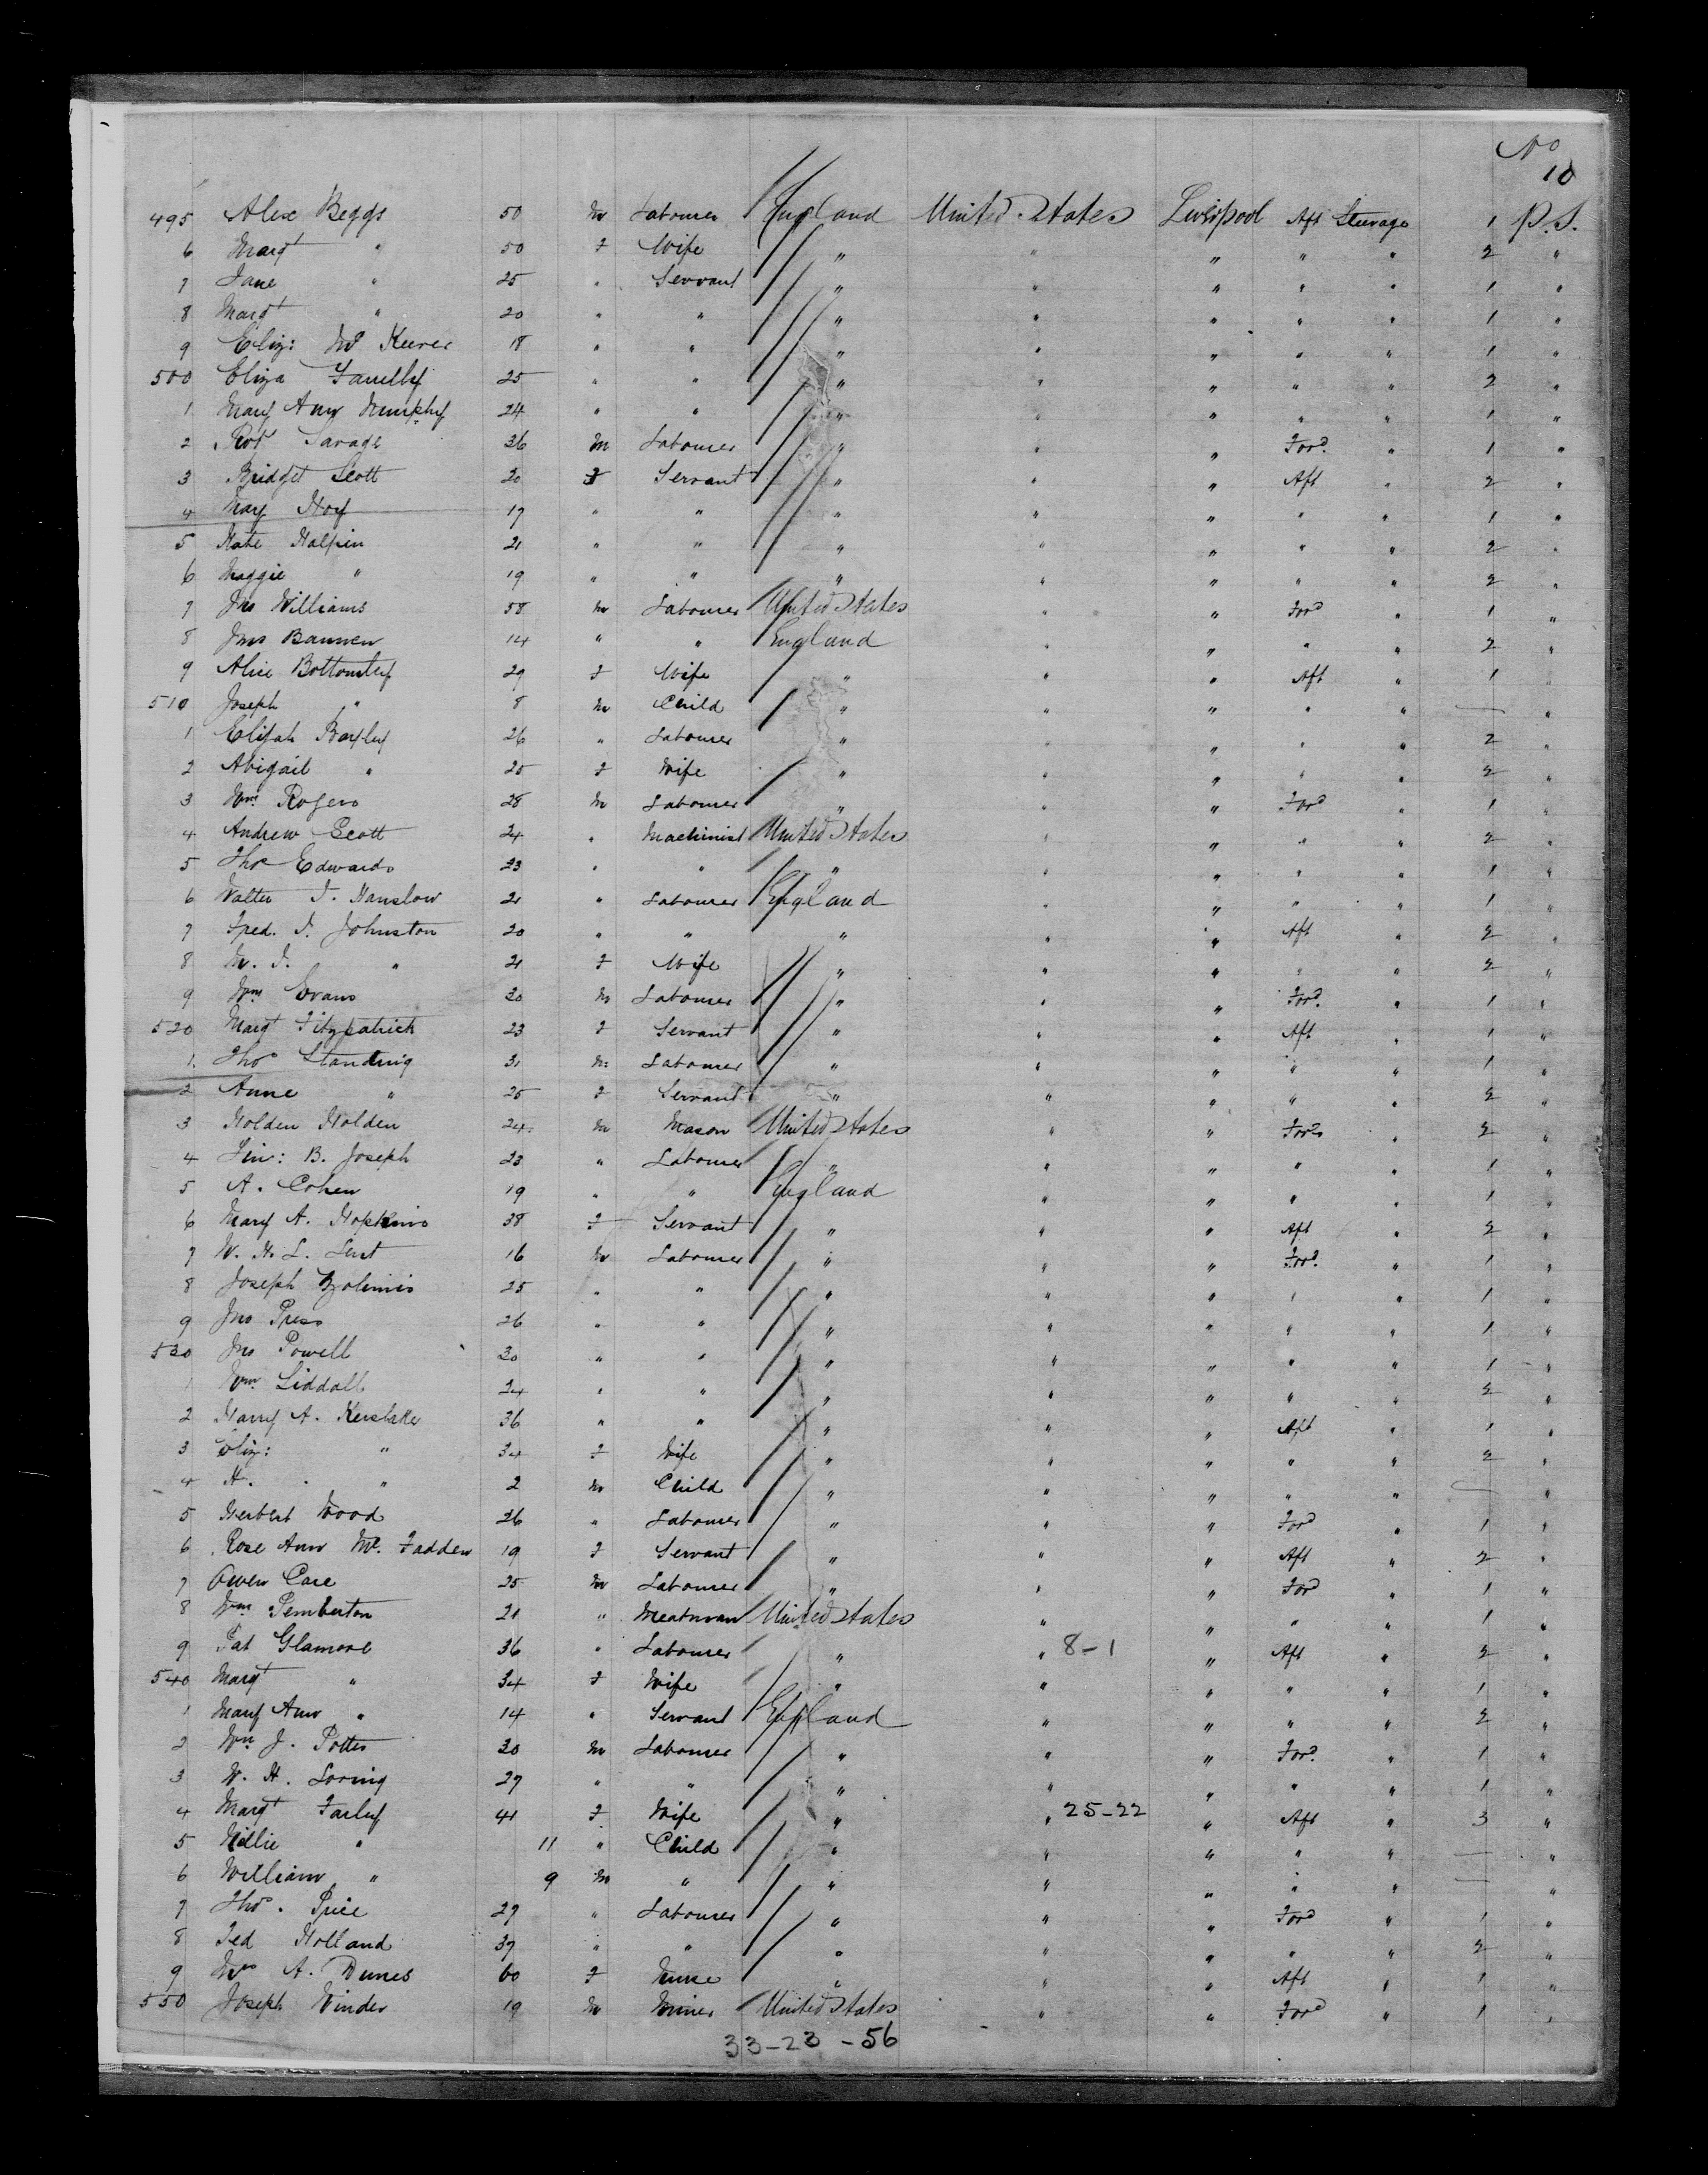 No
10
495 Alex Beggs 50 m Labourer England United States Liverpool Aft Steerage 1 P.S.
6 Margt " 50 F Wife " " " " " 2 "
7 Jane " 25 " Servant " " " " " 1 "
8 Margt " 20 " " " " " " " 1 "
9 Eliz: Mc Keever 18 " " " " " " " 1 "
500 Eliza 25 " " " " " " " 2 "
1 Mary Ann Murphy 24 " " " " " " " 1 "
2 Robt Savage 36 m Labourer " " " Ford " 1 "
3 Bridget Scott 20 F Servant " " " Aft " 2 "
4 Mary Hoy 17 " " " " " " " 1 "
5 Kate Halpin 21 " " " " " " " 2 "
6 Maggie " 19 " " " " " " " 2 "
7 Jno Williams 58 m Labourer United States " " Ford " 1 "
8 Jno Bannen 14 " " England " " " " 2 "
9 Alice Bottomley 29 F Wife " " " Aft " 1 "
510 Joseph " 8 m Child " " " " " — "
1 Elijah Bayley 26 " Labourer " " " " " 2 "
2 Abigail " 25 F Wife " " " " " 2 "
3 Wm Rogers 28 m Labourer " " " Ford " 1 "
4 Andrew Scott 24 " Machinist United States " " " " 2 "
5 Thos Edwards 23 " " " " " " " 1 "
6 Walter J. Hanslow 21 " Labourer England " " " " 1 "
7 Fred. J. Johnston 20 " " " " " Aft " 2 "
8 M. J. " 21 F Wife " " " " " 2 "
9 Wm Evans 20 m Labourer " " " Ford " 1 "
520 Margt Fitzpatrick 23 F Servant " " " Aft " 1 "
1. Thos Standring 31 m Labourer " " " " " 1 "
2 Anne " 25 F Servant " " " " " 2 "
3 Holden Holden 24 m Mason United States " " Ford " 2 "
4 Lin: B. Joseph 23 " Labourer " " " " " 1 "
5 A. Cohen 19 " " England " " " " 1 "
6 Mary A. Hopkins 38 F Servant " " " Aft " 2 "
7 W. H. L. Lent 16 m Labourer " " " Ford " 1 "
8 Joseph 25 " " " " " " " 1 "
9 Jno Press 26 " " " " " " " 1 "
530 Jno Powell 30 " " " " " " " 1 "
1 Wm Liddall 24 " " " " " " " 2 "
2 Harry A. Kerslake 36 " " " " " Aft " 1 "
3 Eliz: " 34 F Wife " " " " " 2 "
4 H. " 2 m Child " " " " " — "
5 Herbert Wood 26 " Labourer " " " Ford " 1 "
6 Rose Ann Mc. Fadden 19 F Servant " " " Aft " 2 "
7 Owen Case 25 m Labourer " " " Ford " 1 "
8 Wm Pemberton 21 " Meatman United States " " " " 1 "
9 Pat Glamore 36 " Labourer " " 8-1 " Aft " 2 "
540 Margt " 34 F Wife " " " " " 1 "
1 Mary Ann " 14 " Servant England " " " " 2 "
2 Wm J. Potter 30 m Labourer " " " Ford " 1 "
3 W. H. Loring 27 " " " " " " " 1 "
4 Margt Farley 41 F Wife " " 25-22 " Aft " 3 "
5 Millie " 11 " Child " " " " " — "
6 William " 9 m " " " " " " — "
7 Thos. Price 27 " Labourer " " " Ford " 1 "
8 Ted Holland 37 " " " " " " " 2 "
9 Mrs A. Dunes 60 F Nurse " " " Aft " 1 "
550 Joseph Winder 19 m Miner United States " " Ford " 1 "
33-23-56